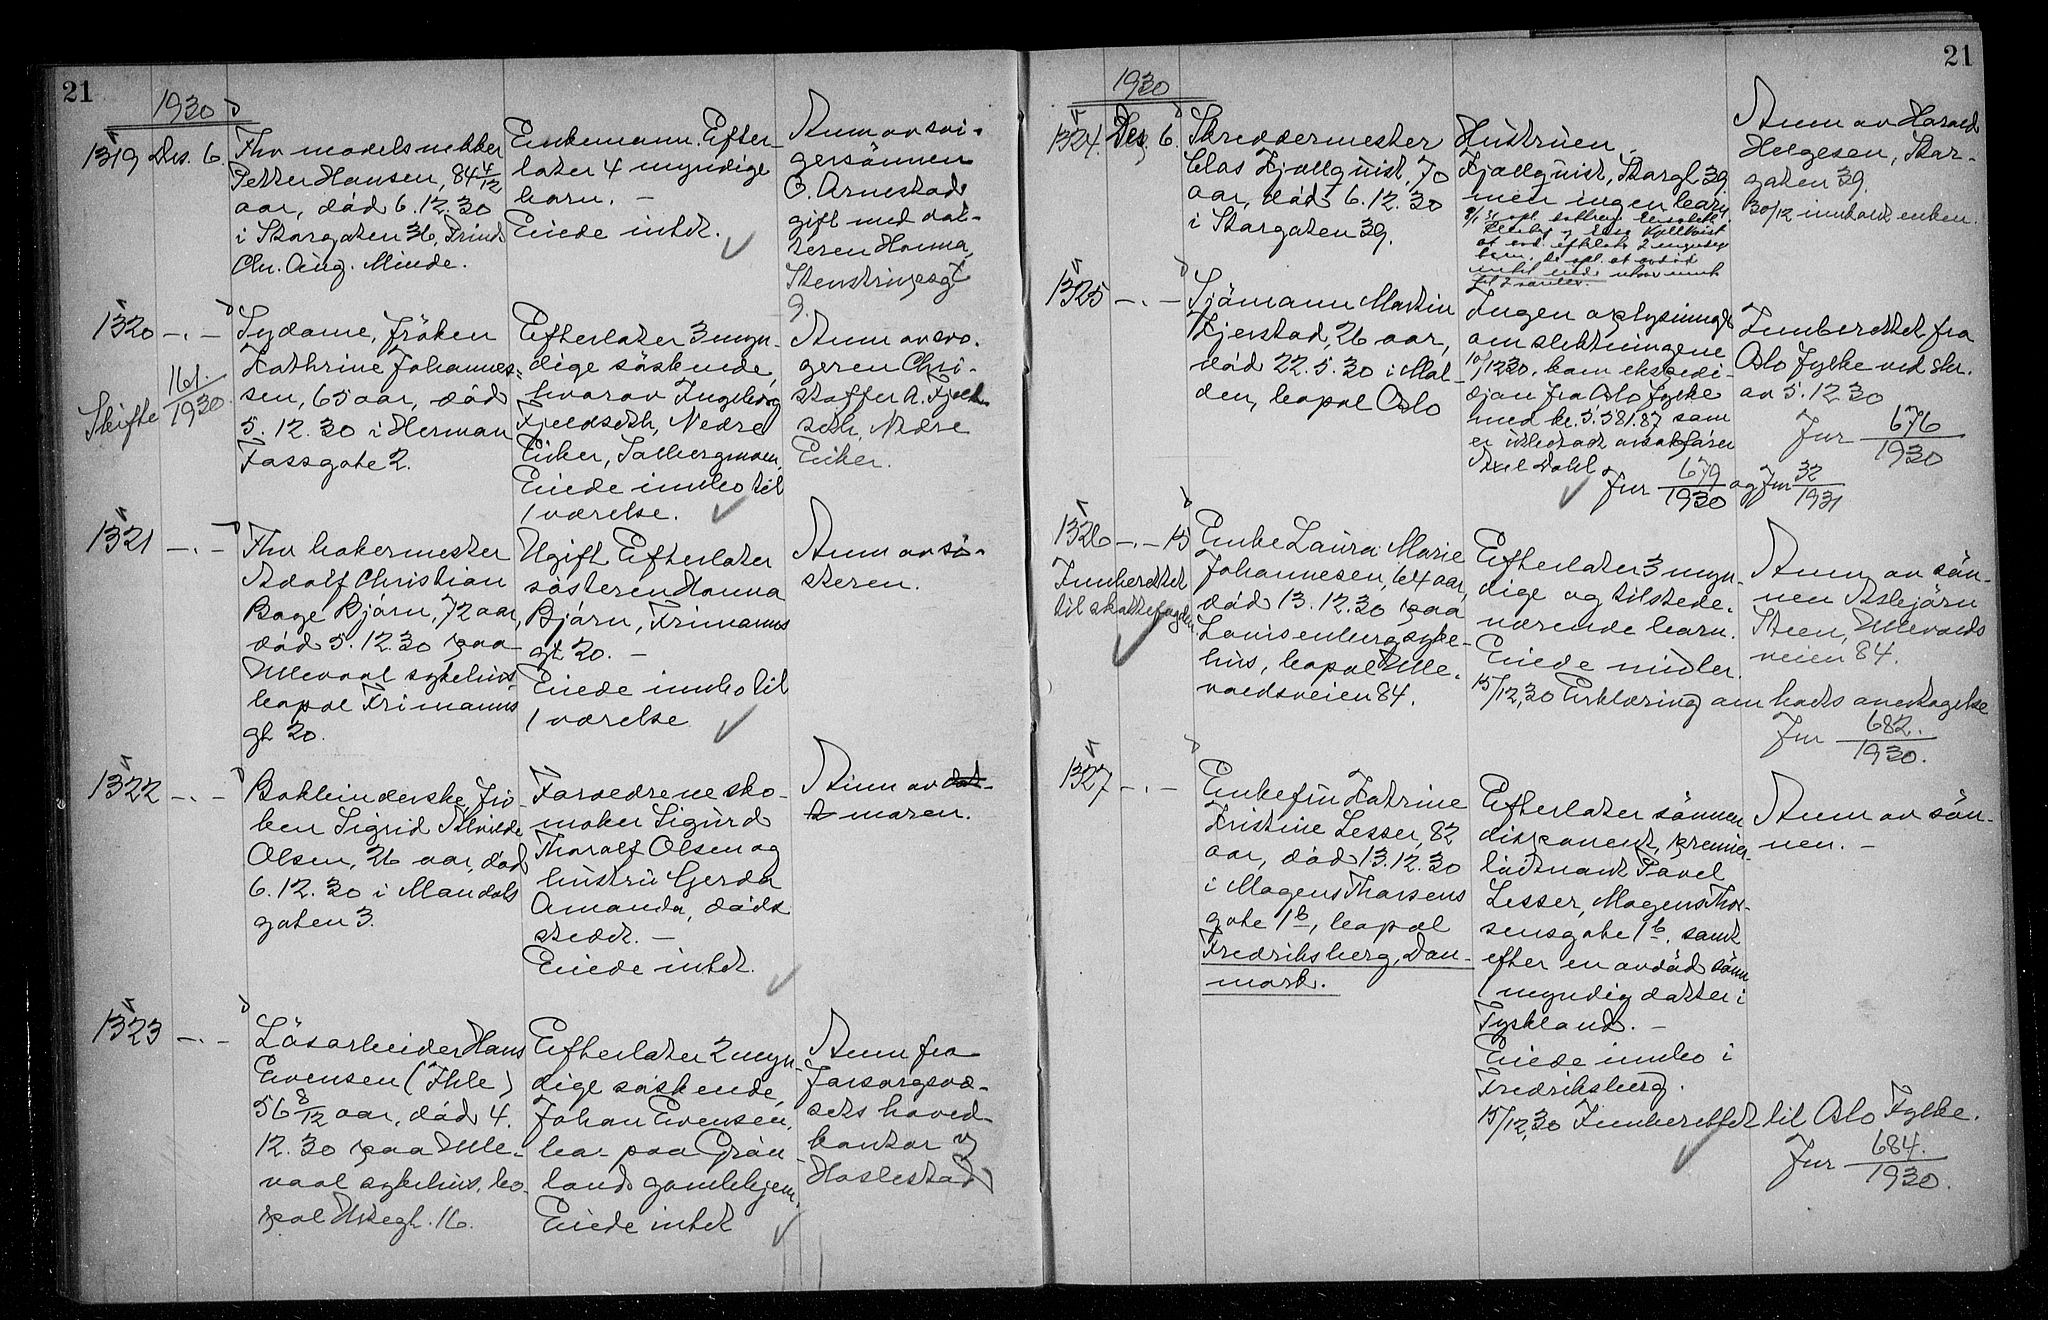 21
1930
1319 Des. 6.
Fhv modelsnekker
Petter Hansen, 84 4/12
aar, død 6.12.30
i Storgaten 36,
Chr. Aug. Minde.
Enkemann. Efter-
later 4 myndige
barn. —
Eiede intet.
Anm av svi-
gersönnen
O. Arnestad
gift med dat-
teren Hanna,
Stenstrupsgt
9.
1320 —.—
Skifte 161./1930.
Sydame, fröken
Kathrine Johannes-
sen, 65 aar, død
5.12.30 i Herman
Fossgate 2.
Efterlater 3 myn-
dige söskende,
hvorav Ingeborg
Fjeldseth, Nedre
Eiker, Solbergmoen,
Eiede innbo til
1 værelse.
Anm av svo-
geren Chri-
stoffer A. Fjeld-
seth, Nedre
Eiker.
1321 —.—
Fhv bakermester
Adolf Christian
Bage Bjørn, 72 aar,
död 5.12.30 paa
Ullevaal sykehus,
bopæl Frimanns
gt 20.
Ugift Efterlater
søsteren Hanna
Bjørn, Frimanns
gt 20. —
Eiede innbo til
1 værelse
Anm av sø-
steren.
1322 —.—
Bokbinderske, frö-
ken Sigrid Alvilde
Olsen, 26 aar, død
6.12.30 i Mandals
gaten 3.
Forældrene sko-
maker Sigurd
Thoralf Olsen og
hustru Gerda
Amanda, døds
stedet. —
Eiede intet.
Anm av
moren.
1323 —.—
Lösarbeider Hans
Evensen (Ihle)
56 8/12 aar, död 4.
12.30 paa Ulle-
vaal sykehus, bo-
pæl Urtegt. 16.
Efterlater 2 myn-
dige söskende,
Johan Evensen,
bor paa Grön
lands gamlehjem,
Eiede intet
Anm fra
forsorgsvæ-
sets hoved-
kontor v/
Haslestad
21
1930
1324. Des 6.
Skreddermester
Clas Kjallquist, 70
aar, död 6.12.30
i Storgaten 39.
Hustruen.
Kjallquist, Storgt 39
men ingen barn
Anm av Harald
Helgesen, Stor-
gaten 39.
30/12 innkaldt enken.
1325 —.—
Sjömann Martin
Kjerstad, 26 aar,
död 22.5.30 i Mal-
den, bopæl Oslo
Ingen oplysninger
om slektningene
10/12 30. kom ekspedi-
sjon fra Oslo fylke
med kr. 5.581.87 som
er utbetalt avsakfører
Axel Dahl
Jnr 679/1930 og Jnr 32/1931
Innberettet fra
Oslo fylke ved skr.
av 5.12.30
Jnr 676/1930
1326 —.— 15
Innberettet
til skattefogden
Enke Laura Marie
Johannesen, 64 aar,
död 13.12.30 paa
Louisenberg syke-
hus, bopæl Ulle-
vaalsveien 84.
Efterlater 3 myn-
dige og tilstede-
værende barn.
Eiede midler.
15/12.30 Erklæring om bots overtagelse
Jnr 682./1930.
Anm av søn-
nen Asbjörn
Steen, Ullevaals
veien 84.
1327 —.—
Enkefru Katrine
Kristine Lesser, 82
aar, död 13.12.30
i Mogens Thorsens
gate 1b, bopæl
Fredriksberg, Dan-
mark.
Efterlater sönnen
disponent, premier-
löitnant Pavel
Lesser, Mogens Thor-
sensgate 1b, samt
efter en avdöd sönn
1 myndig datter i
Tyskland. —
Eiede innbo i
Fredriksberg.
15/12.30 Innberettet til Oslo Fylke.
Jnr 684./1930.
Anm av sön-
nen. —